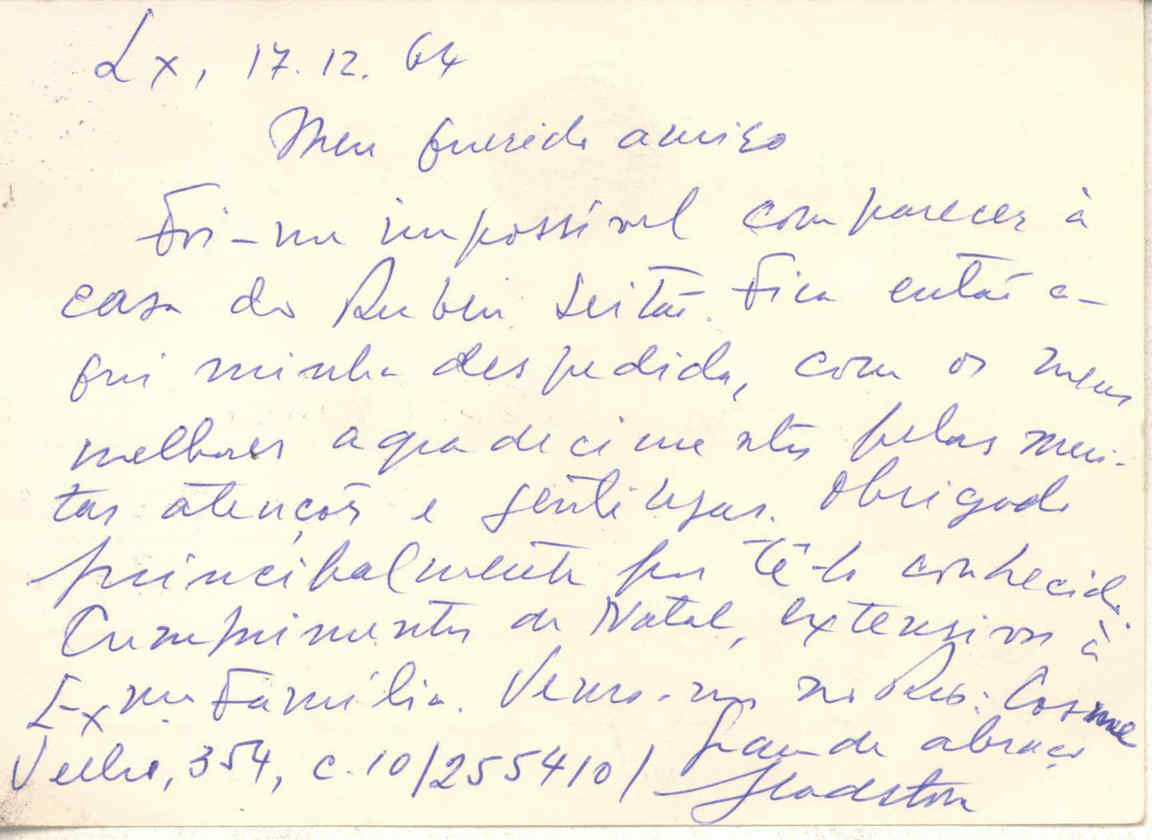 Lx, 17.12.64
Meu querido amigo
Foi-me impossível comparecer à
casa do Ruben Leitão. Fica então a-
qui minha despedida, com os meus
melhores agradecimentos pelas mui-
tas atenções e gentilezas. Obrigado
principalmente por tê-lo conhecido.
Cumprimentos de Natal, extensivos à
Exma. Família. Vemo-nos no Rio: Cosme
Velho, 354, c.10/255410/ Grande abraço
Gladston